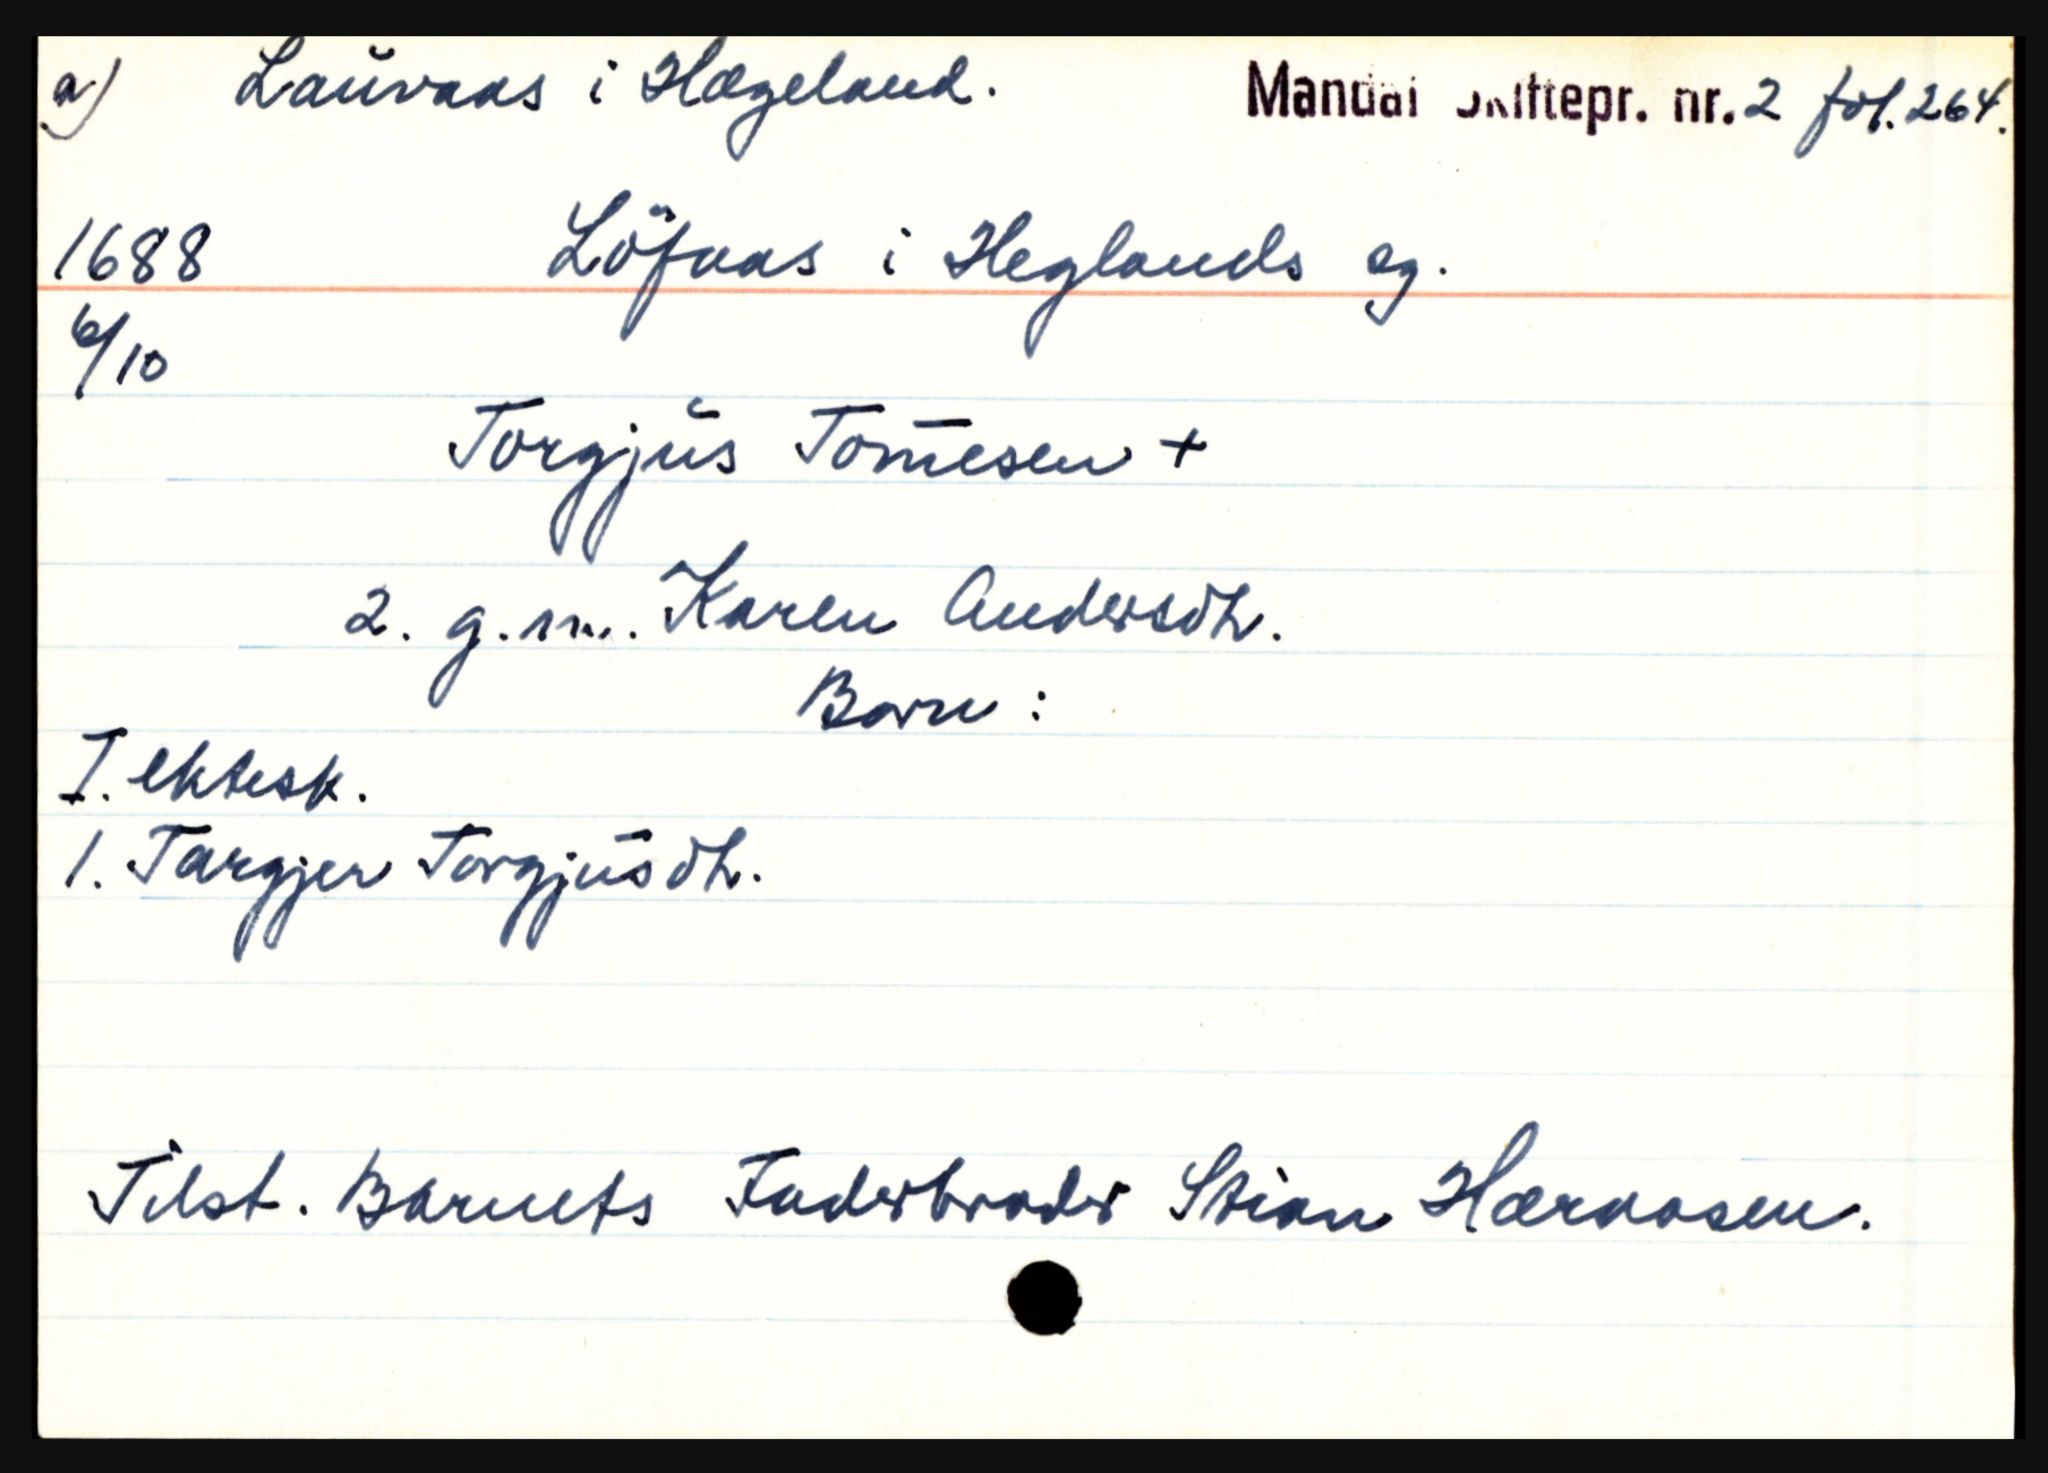 a) Lauvaas i Hægeland. Mandal Skiftepr. nr. 2 fol. 264.
1688 Löfaas i Heglands sg.
6/10
Torgjus Tom̄esen +
2. g. m. Karen Andersdh.
Born:
I. ektesk.
1. Targjer Torgjusdh.
Tilst. Barnets Faderbroder Stian Hæraasen.